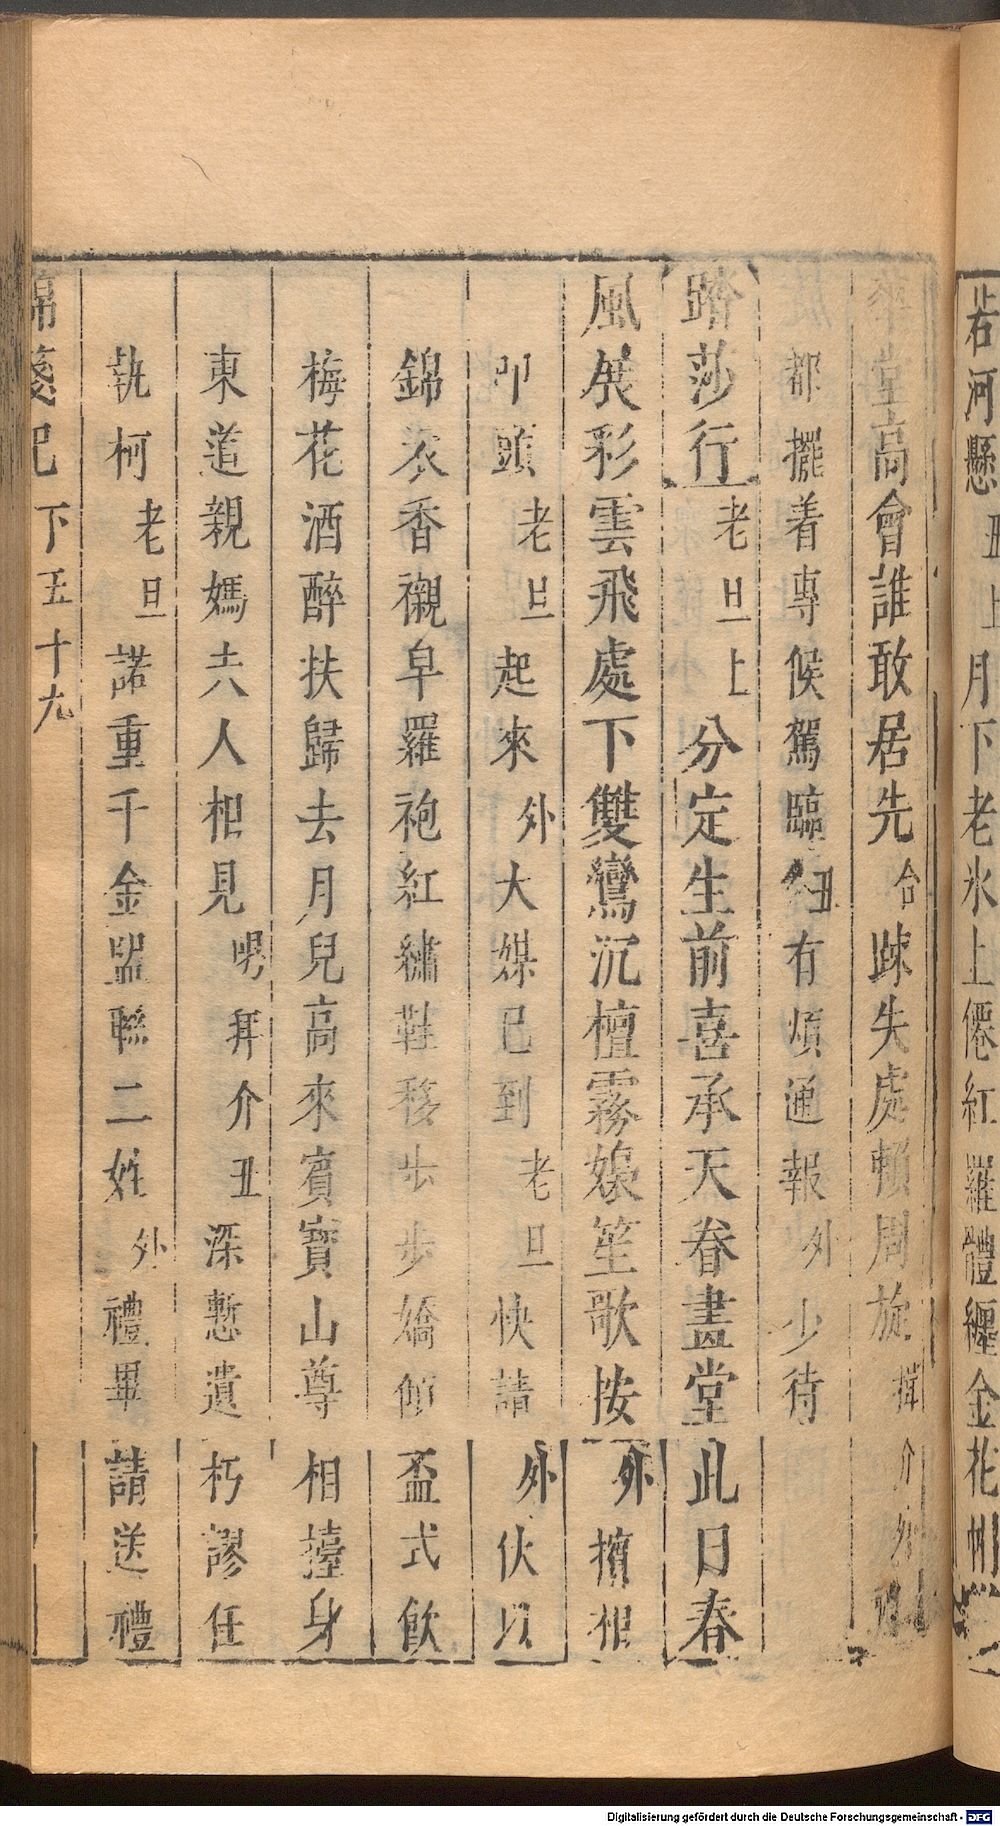 岩河懸丑上月下老氷上僊紅羅體纏金花州
華堂高會誰敢居先合踈失處賴周旋揖介外
都擺着專候駕臨丑有煩通報外少待
踏莎行老旦上分定生前喜承天眷畫堂此日春
風展彩雲飛處下雙鸞沉檀霧嬝笙歌按外擯相
叩頭老旦起來外大媒已到老旦快請外伏以
錦衣香襯皁羅袍紅繡鞋移步步嬌傾盃式飲
梅花酒醉扶歸去月兒高來賓寶山尊相擡身
東道親媽六人相見喎拜介丑深慙遺朽謬任
執柯老旦諾重千金盟聯二姓外禮畢請送禮
錦箋記下五十九
Digitalisierung gefördert durch die Deutsche Forschungsgemeinschaft - DFG